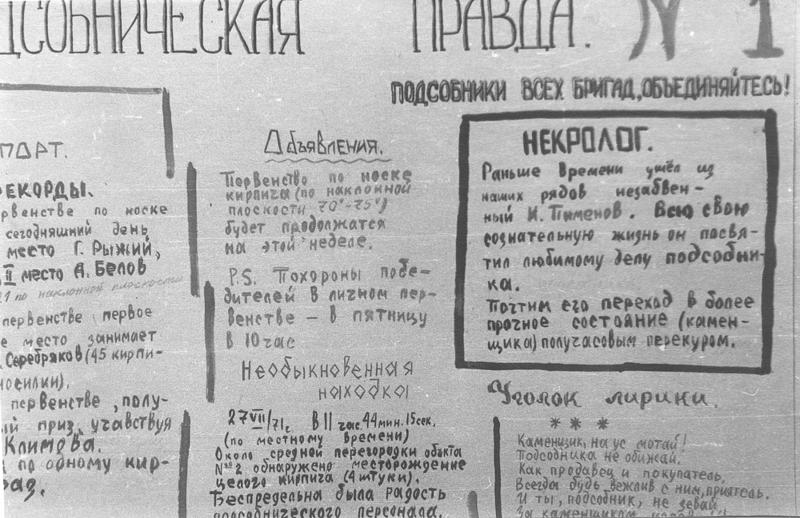 ДСОБНИЧЕСКАЯ ПРАВДА. № 1
ПОДСОБНИКИ ВСЕХ БРИГАД, ОБЪЕДИНЯЙТЕСЬ!
ПОРТ.
ЕКОРДЫ.
рвенстве по носке
сегодняшний день
место Г. Рыжий,
II место А. Белов
по наклонной плоскости
первенстве первое
е место занимает
Серебряков (45 кирпи-
носилки).
первенстве, полу-
ый приз, участвуя
Климова.
по одному кир-
раз.
Объявления.
Первенство по носке
кирпича (по наклонной
плоскости 70°-75°)
будет продолжатся
на этой неделе.
P.S. Похороны побе-
дителей в личном пер-
венстве – в пятницу
в 10 час
Необыкновенная
находка
27 VII/71г. в 11 час. 44 мин. 15 сек.
(по местному времени)
Около средной перегородки обакта
№2 обнаружено месторождение
целого кирпича (4 штуки).
Беспредельна была радость
подсобнического персонала.
НЕКРОЛОГ.
Раньше времени ушёл из
наших рядов незабвен-
ный И. Пименов. Всю свою
сознательную жизнь он посвя-
тил любимому делу подсобни-
ка.
Почтим его переход в более
прочное состояние (камен-
щика) получасовым перекуром.
Уголок лирики.
* * *
Каменщик, на ус мотай!
Подсобника не обижай.
Как продавец и покупатель,
Всегда будь вежлив с ним, приятель.
И ты, подсобник, не зевай
За каменщиком